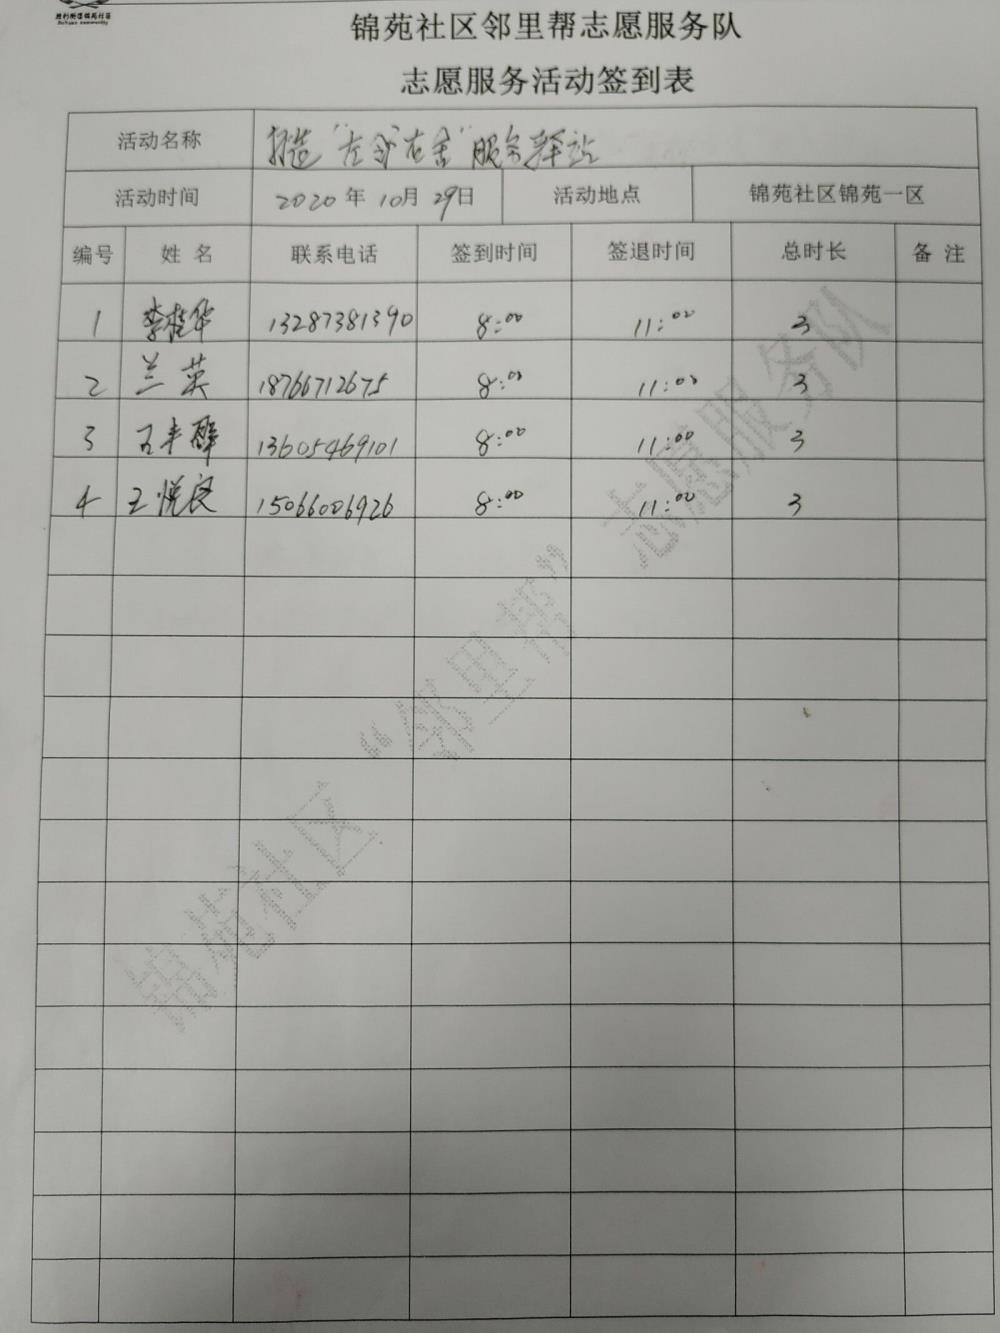 胜利街道锦苑社区
锦苑社区邻里帮志愿服务队
志愿服务活动签到表
活动名称 打造“左邻右舍”服务驿站
活动时间 2020年10月29日 活动地点 锦苑社区锦苑一区
编号 姓名 联系电话 签到时间 签退时间 总时长 备注
1 李桂华 13287381390 8:00 11:00 3
2 兰英 18766712675 8:00 11:00 3
3 13605469101 8:00 11:00 3
4 王悦良 15066006926 8:00 11:00 3
锦苑社区“邻里帮”志愿服务队